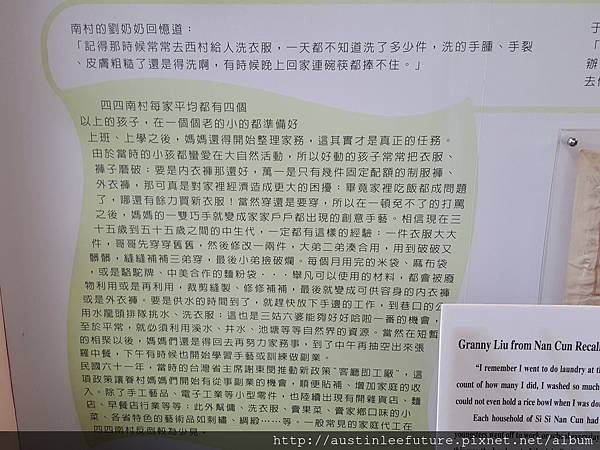 南村的劉奶奶回憶道：
「記得那時候常常去西村給人洗衣服，一天都不知道洗了多少件，洗的手腫、手裂
、皮膚粗糙了還是得洗啊，有時候晚上回家連碗筷都捧不住。」
四四南村每家平均都有四個
以上的孩子，在一個個老的小的都準備好
上班、上學之後，媽媽還得開始整理家務，這其實才是真正的任務。
由於當時的小孩都蠻愛在大自然活動，所以好動的孩子常常把衣服、
褲子磨破；要是內衣褲那還好，萬一是只有幾件固定配額的制服褲、
外衣褲，那可真是對家裡經濟造成更大的困擾：畢竟家裡吃飯都成問題
了，哪還有餘力買新衣服！當然穿還是要穿，所以在一頓免不了的打罵
之後，媽媽的一雙巧手就變成家家戶戶都出現的創意手藝。相信現在三
十五歲到五十五歲之間的中生代，一定都有這樣的經驗：一件衣服大大
件，哥哥先穿穿舊舊，然後修改一兩件，大弟二弟湊合用，用到破破又
髒髒，縫縫補補三弟穿，最後小弟撿破爛。每個月用完的米袋、麻布袋
，或是駱駝牌、中美合作的麵粉袋．．．舉凡可以使用的材料，都會被廢
物利用或是再利用，裁剪縫製、修修補補，最後就變成可供容身的內衣褲
或是外衣褲。要是供水的時間到了，就趕快放下手邊的工作，到巷口的公
用水龍頭排隊挑水、洗衣服；這也是三姑六婆能夠好好哈啦一番的機會，
至於平常，就必須利用溪水、井水、池塘等等自然界的資源。當然在短暫
的相聚以後，媽媽們還是得回去再努力家務事，到了中午再抽空出來張
羅中餐，下午有時候也開始學習手藝或訓練做副業。
民國六十一年，當時的台灣省主席謝東閔推動新政策"客廳即工廠"，這
項政策讓眷村媽媽們開始有從事副業的機會，順便貼補、增加家庭的收
入。除了手工藝品、電子工業等小型零件，也陸續出現有開雜貨店、麵
店、早餐店行業等等；此外幫傭、洗衣服、賣果菜、賣家鄉口味的小
菜、各省特色的藝術品如刺繡、綢緞……等。一般常見的家庭代工在
四四南村反倒較為少見。
于
「
辦
去
Granny Liu from Nan Cun Recal
"I remember I went to do laundry at th
count of how many I did, I washed so much
could not even hold a rice bowl when I was do
Each household of Si Si Nan Cun had
youngsters went off to work or school everyday
http://austinleefuture.pixnet.net/album